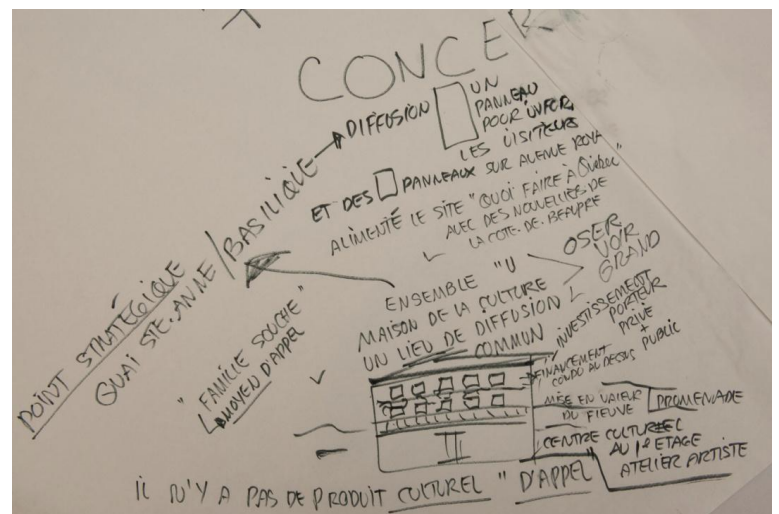 CONCER
POINT STRATÉGIQUE
QUAI STE-ANNE / BASILIQUE → DIFFUSION
UN
PANNEAU
POUR INFOR
LES VISITEURS
ET DES PANNEAUX SUR AVENUE ROYA
ALIMENTÉ LE SITE "QUOI FAIRE À Québec"
AVEC DES NOUVELLES DE
LA COTE-DE-BEAUPRE
OSER
VOIR
GRAND
ENSEMBLE
MAISON DE LA CULTURE
UN LIEU DE DIFFUSION
COMMUN
INVESTISSEMENT
PORTEUR
PRIVÉ
+
PUBLIC
"FAMILLE SOUCHE"
MOYEN D'APPEL
FINANCEMENT
CONDO AU DESSUS
MISE EN VALEUR
DU FLEUVE
PROMENADE
CENTRE CULTUREL
AU 1er ETAGE
ATELIER ARTISTE
IL N'Y A PAS DE PRODUIT CULTUREL "D'APPEL"